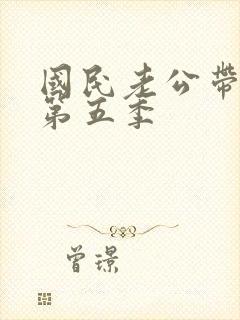 國民老公帶
第五季
曾璟